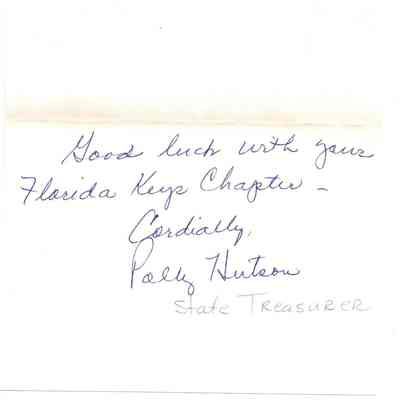 Good luck with your
Florida Keys Chapter -
Cordially,
Polly Hutson
State Treasurer